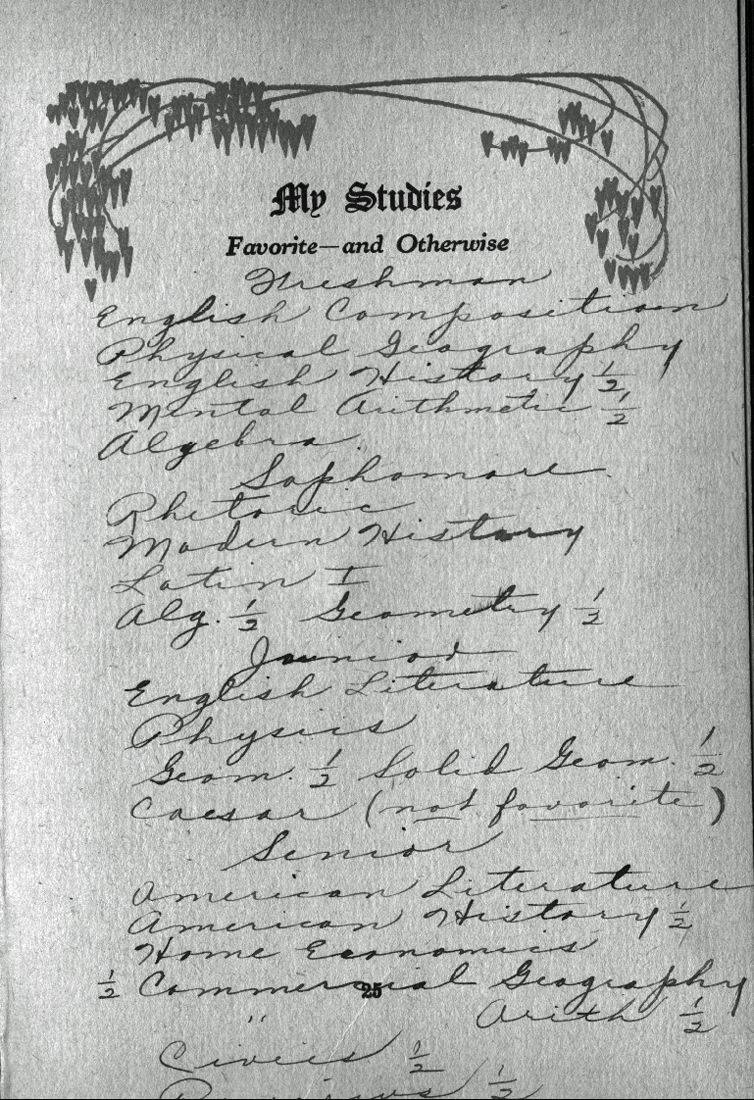 My Studies
Favorite—and Otherwise
Freshman
English Composition
Physical Geography
English History 1/2
Mental Arithmetic 1/2
Algebra
Sophomore
Rhetoric
Modern History
Latin I
Alg. 1/2 Geometry 1/2
Junior
English Literature
Physics
Geom. 1/2 Solid Geom. 1/2
Caesar (not favorite)
Senior
American Literature
American History 1/2
Home Economics
1/2 Commercial Geography
25
" Arith 1/2
Civics 1/2
1/2